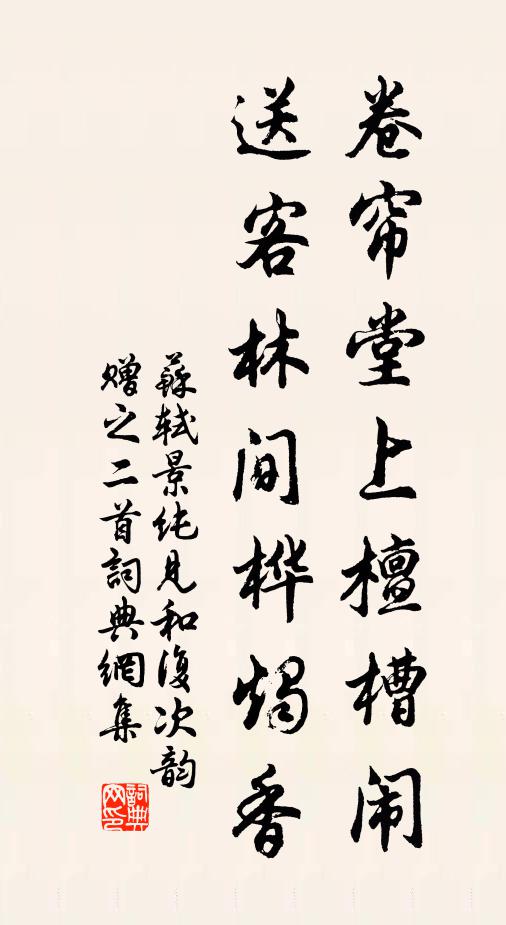 卷帘堂上檀槽闹
送客林间桦烛香
蘇轼景纯見和復次韵
赠之二首詞典網集
詞典网印